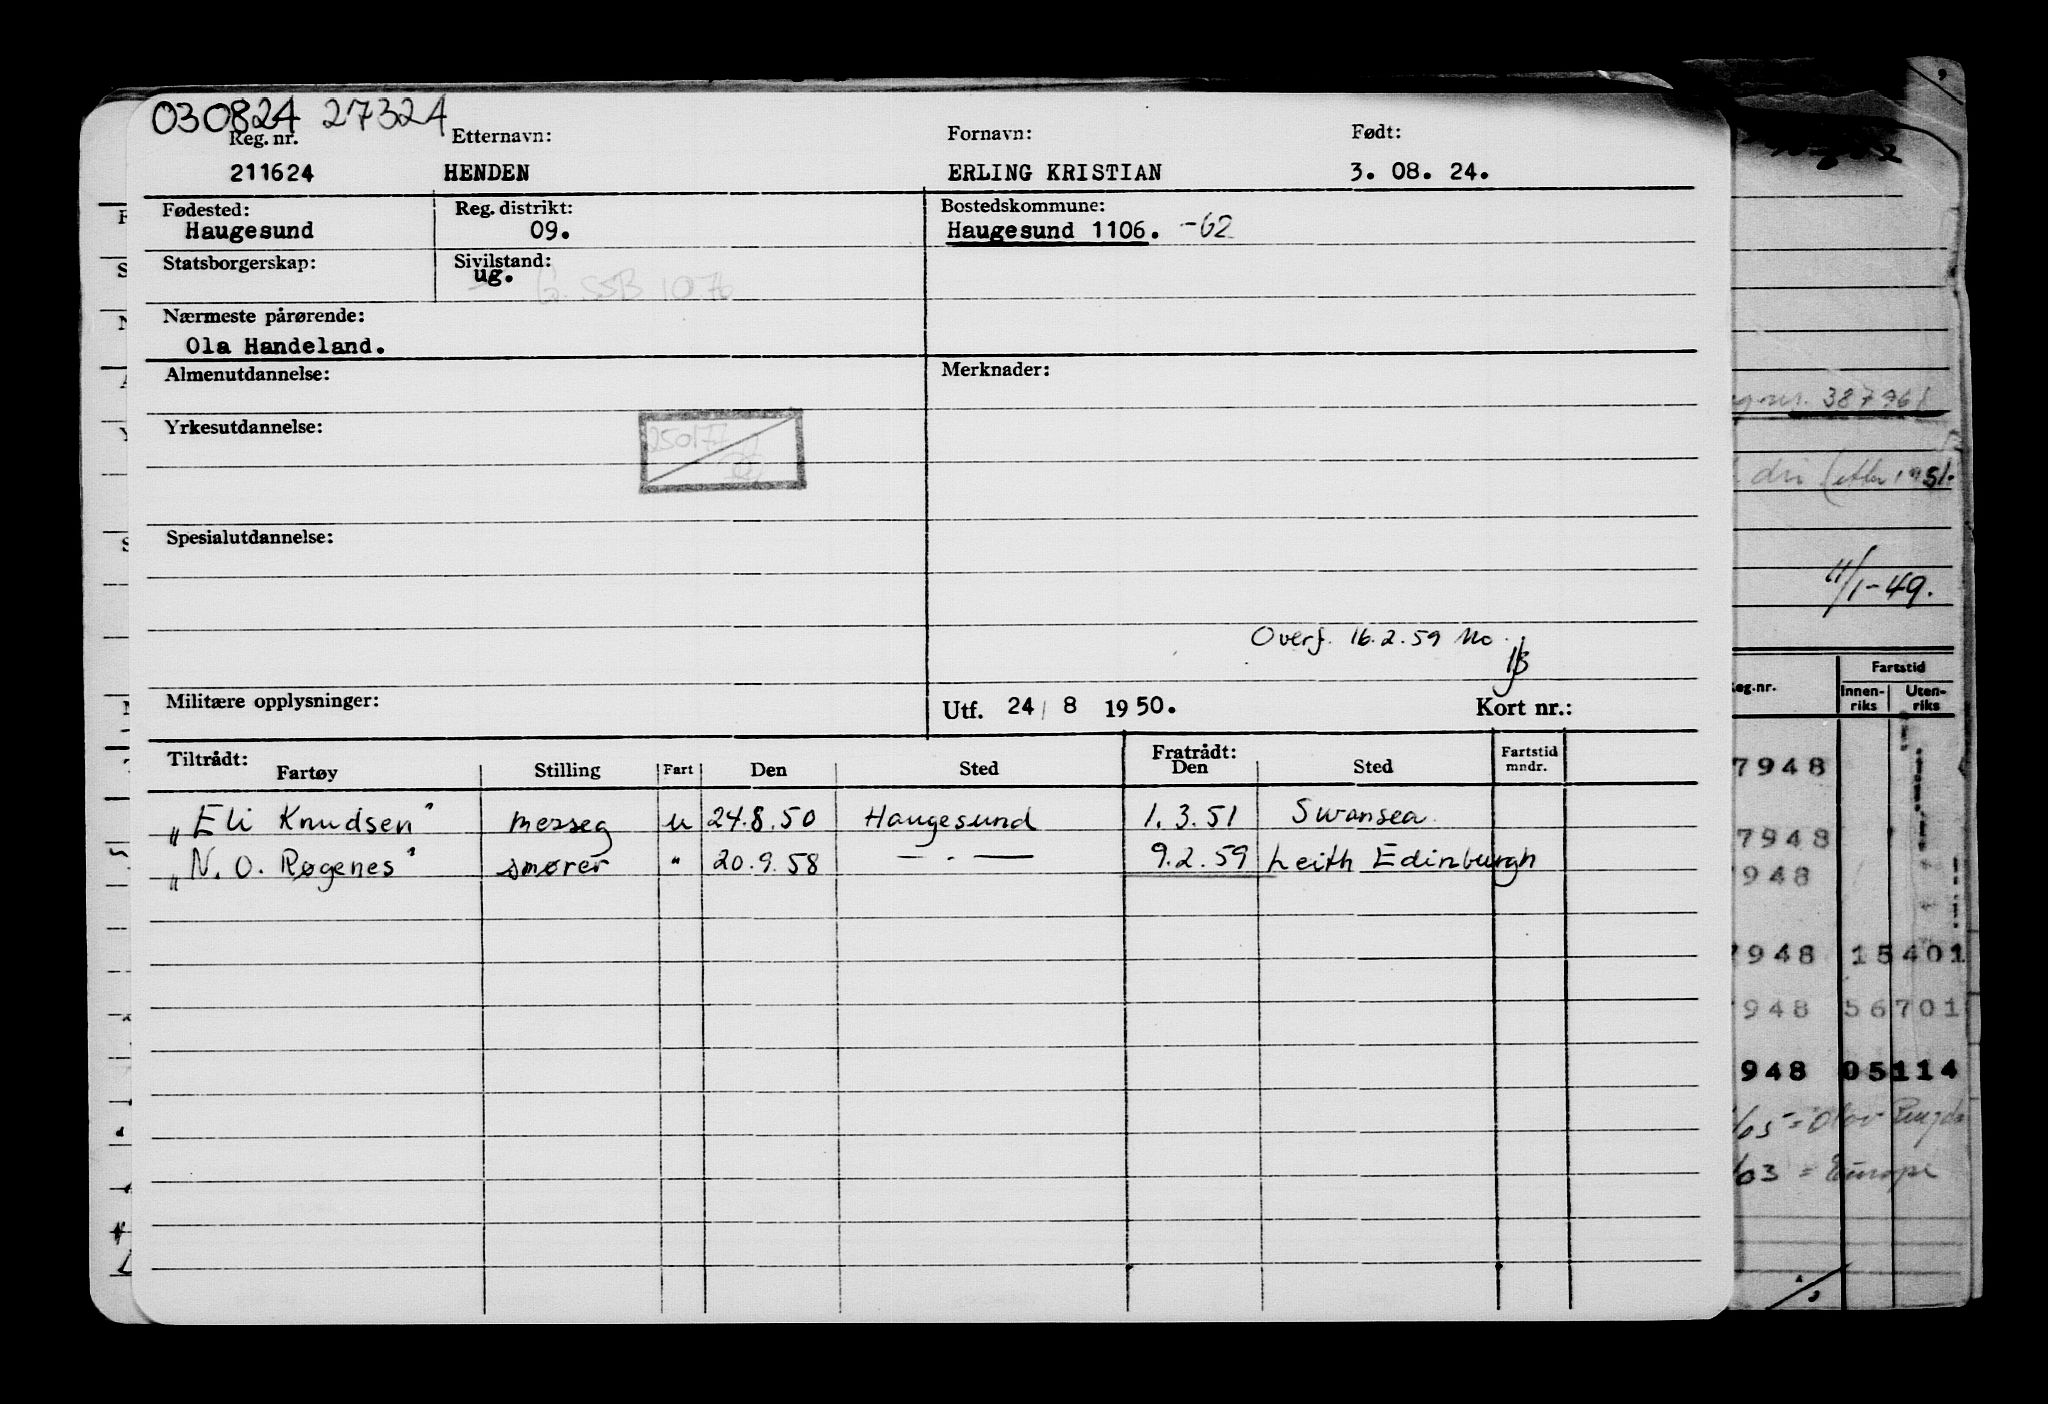 030824 27324
Reg. nr. Etternavn: Fornavn: Født:
211624 HENDEN ERLING KRISTIAN 3. 08. 24.
Fødested: Reg. distrikt: Bostedskommune:
Haugesund 09. Haugesund 1106. -62
Statsborgerskap: Sivilstand:
ug. G. SSB 10.76
Nærmeste pårørende:
Ola Handeland.
Almenutdannelse: Merknader:
Yrkesutdannelse:
250177
Spesialutdannelse:
Overf. 16.2.59 Mo.
Militære opplysninger: Utf. 24/ 8 1950. Kort nr.:
Tiltrådt: Fratrådt: Fartstid
Fartøy Stilling Fart Den Sted Den Sted mndr.
"Eli Knudsen" messeg u 24.8.50 Haugesund 1.3.51 Swansea
"N. O. Røgenes" smører " 20.9.58 — " — 9.2.59 Leith Edinburgh
38796
11/1-49.
eg.nr. Fartstid
Innen-riks Uten-riks
7948
7948
948
7948 15401
948 56701
948 05114
/03 = Europe